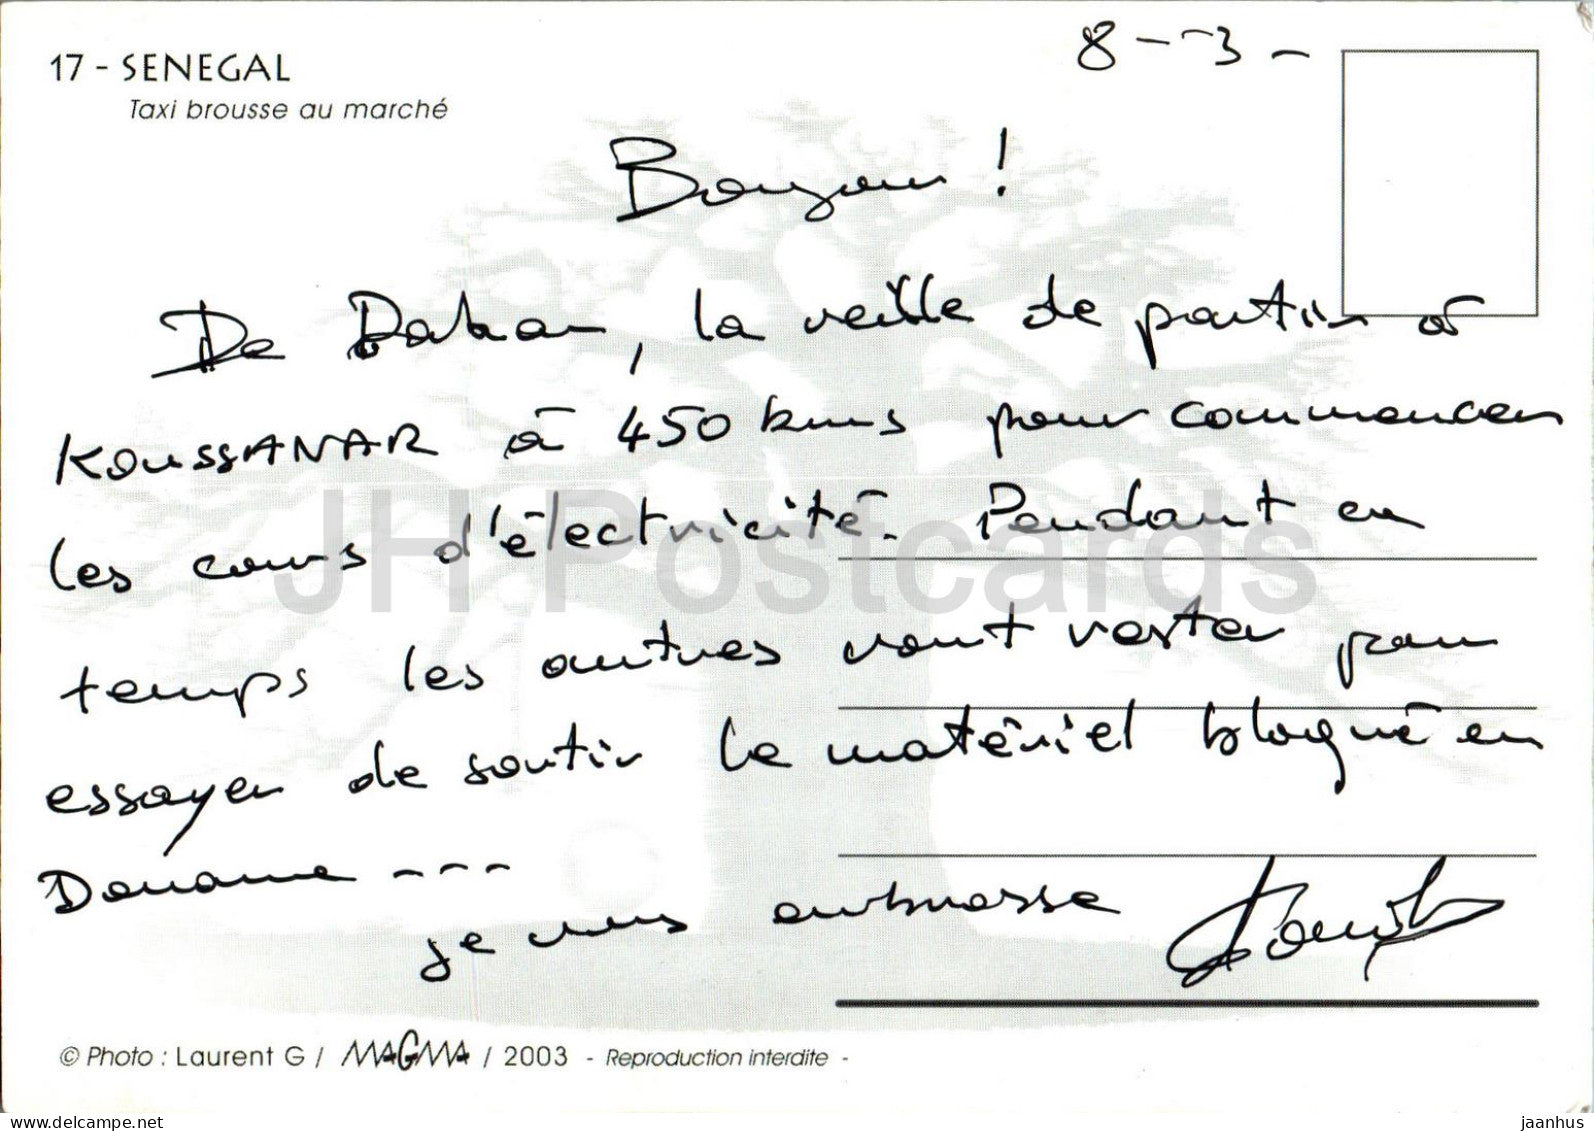 17 - SENEGAL
Taxi brousse au marché
8 - 3 -
Bonjour !
De Dakar, la veille de partir à
KOUSSANAR à 450 kms pour commencer
les cours d'électricité. Pendant ce
temps les autres vont rester pour
essayer de sortir le matériel bloqué en
Douane ---
je vous embrasse
© Photo : Laurent G / MAGMA / 2003 - Reproduction interdite -
JH Postcards
www.delcampe.net
jaanhus